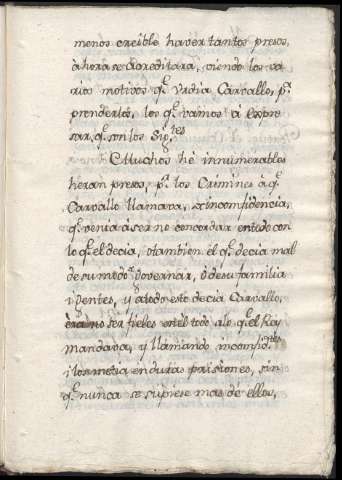 menos creible haver tantos presos,
ahora se acreditará, siendo los va
rios motivos q.e urdia Carvallo, p.a
prenderlos, los q.e vamos á expre
sar, q.e son los sig.tes
Muchos hé innumerables
heran presos, p.r los Crimines á q.e
Carvallo llamava, inconfidencia,
q.e venia á ser no concordar en todo con
lo q.e el decia, o tambien el q.e decia mal
de su modo governar, ó de su familia
i Jentes, y á todo esto decia Carvallo,
era no ser fieles en el todo a lo q.e el Rey
mandava, y llamando inconfid.tes
i los metia en duras prisiones, sin
q.e nunca se supiese mas de ellos,